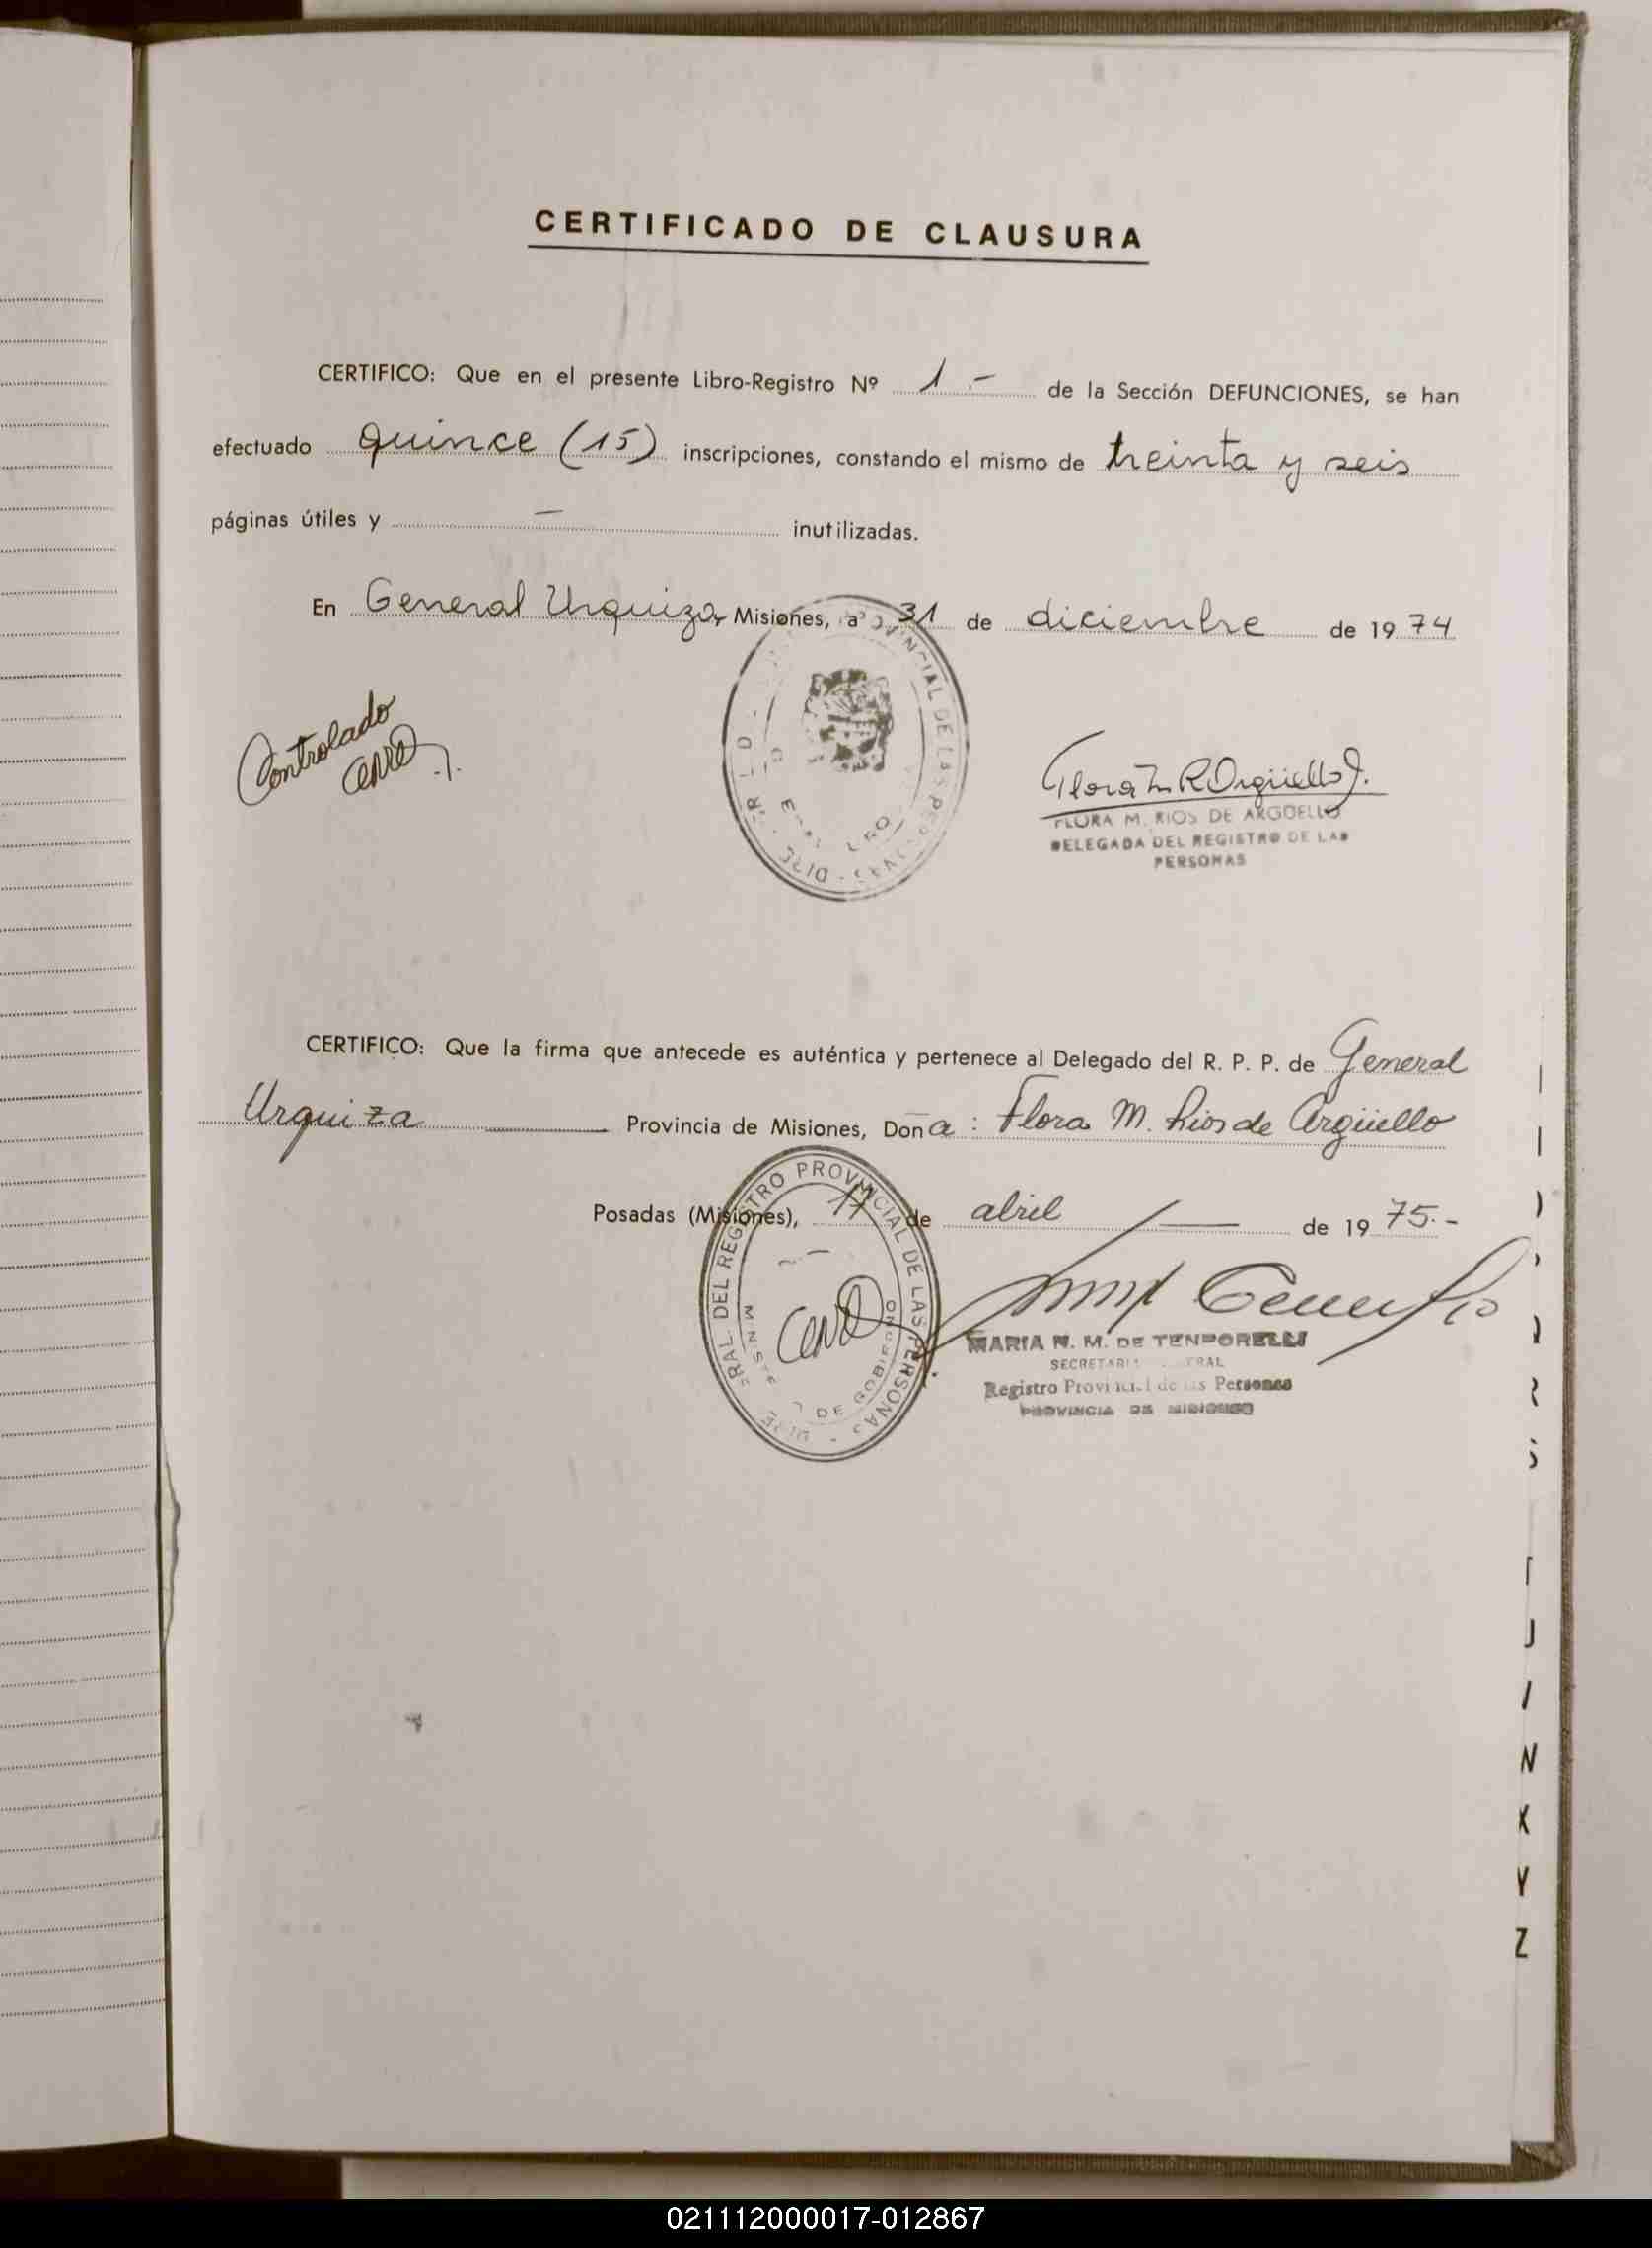 CERTIFICADO DE CLAUSURA
CERTIFICO: Que en el presente Libro-Registro Nº 1.- de la Sección DEFUNCIONES, se han
efectuado quince (15) inscripciones, constando el mismo de treinta y seis
páginas útiles y — inutilizadas.
En General Urquiza, Misiones, a 31 de diciembre de 1974
Controlado
FLORA M. RIOS DE ARGÜELLO
DELEGADA DEL REGISTRO DE LAS
PERSONAS
CERTIFICO: Que la firma que antecede es auténtica y pertenece al Delegado del R. P. P. de General
Urquiza — Provincia de Misiones, Doña: Flora M. Rios de Argüello
Posadas (Misiones), 17 de abril — de 1975.-
REGISTRO PROVINCIAL DE LAS PERSONAS
DE GOBIERNO
MARIA N. M. DE TEMPORELLI
Registro Provincial de las Personas
PROVINCIA DE MISIONES
N
K
Y
Z
021112000017-012867